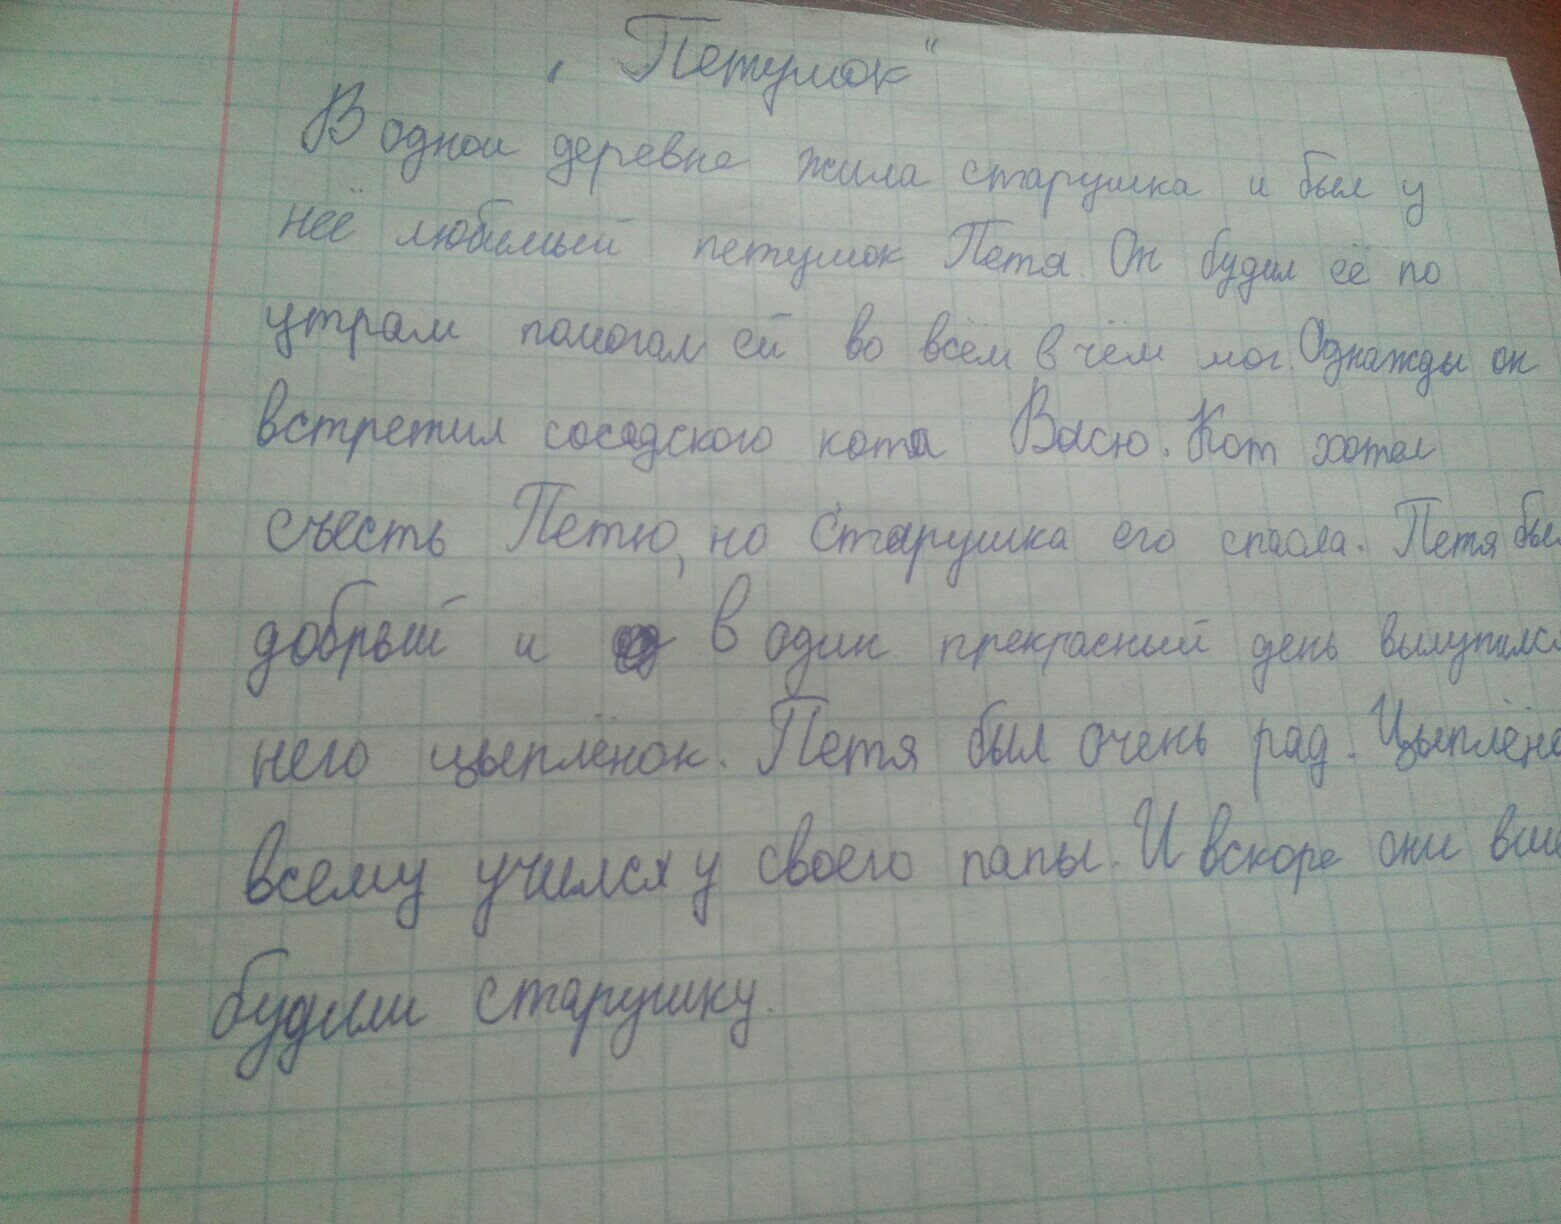 „Петушок“
В одной деревне жила старушка и был у
неё любимый петушок Петя. Он будил её по
утрам помогал ей во всём в чём мог. Однажды он
встретил соседского кота Васю. Кот хотел
съесть Петю, но старушка его спасла. Петя был
добрый и в один прекрасный день вылупился
него цыплёнок. Петя был очень рад. Цыплёно
всему учился у своего папы. И вскоре они вме
будили старушку.